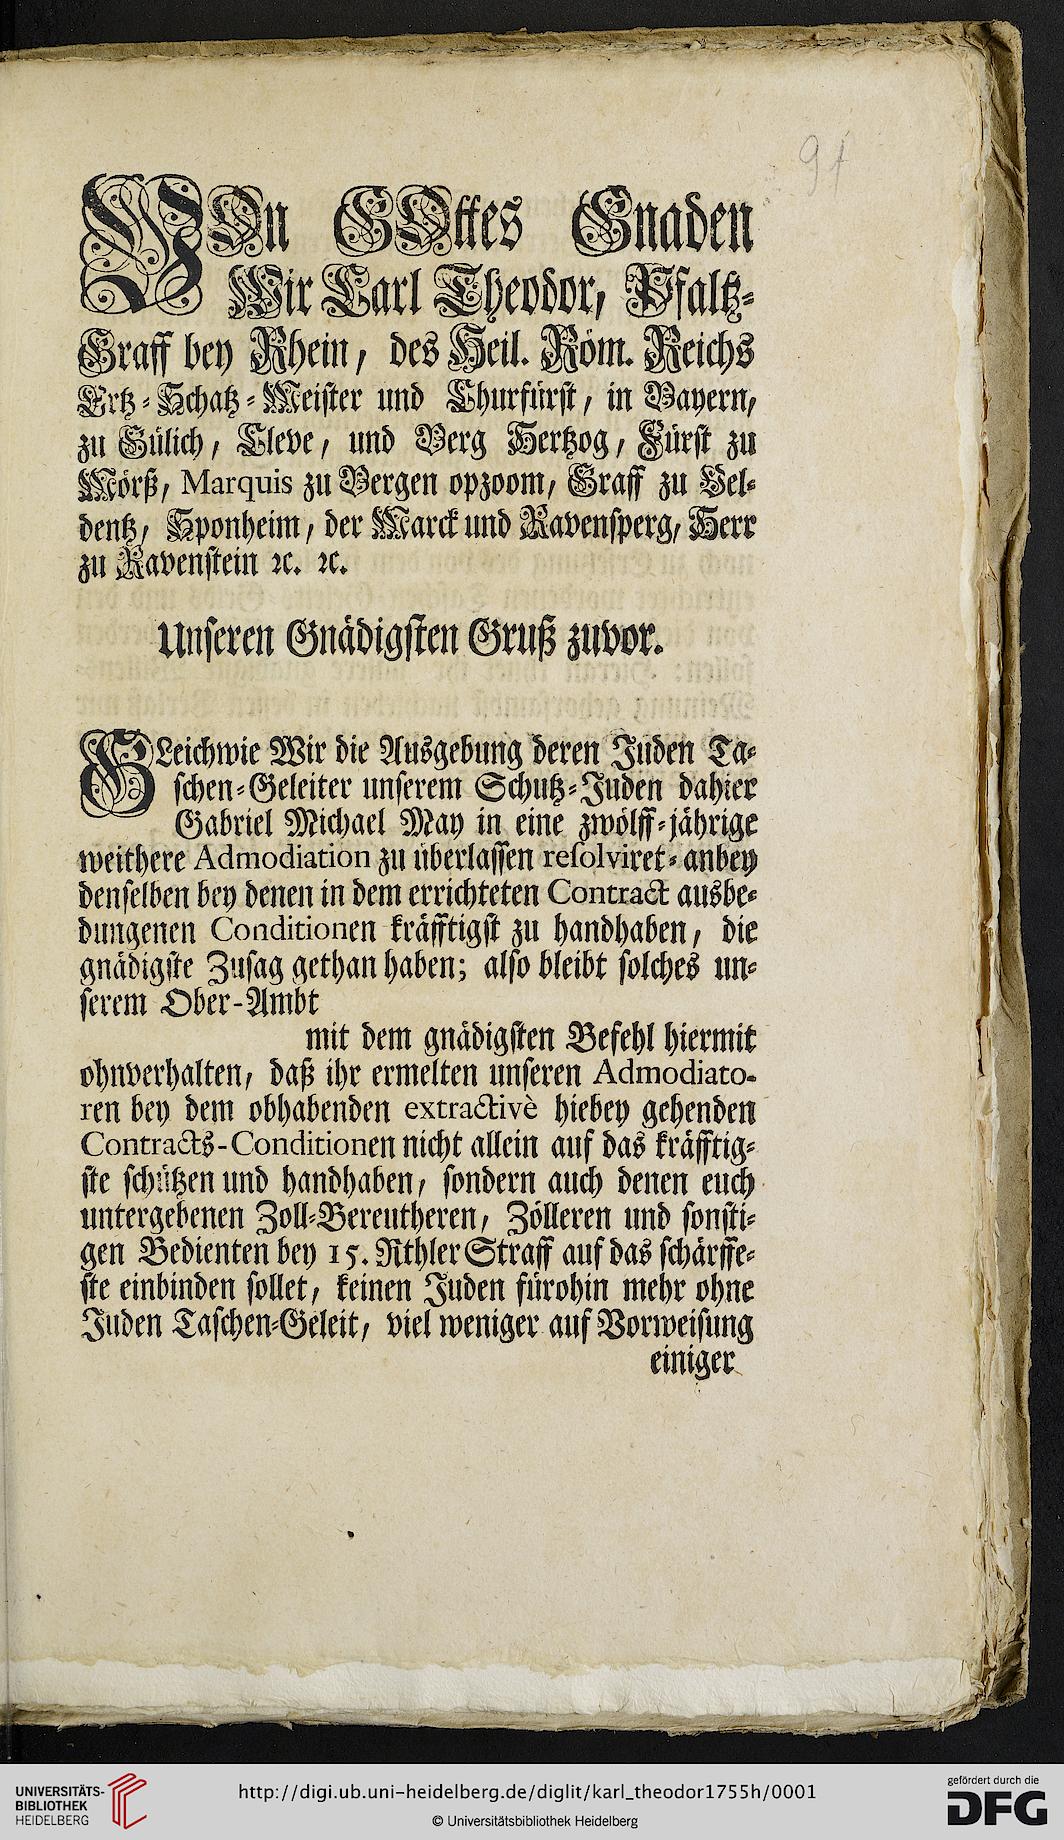 91
VOn GOttes Gnaden
Wir Carl Theodor, Pfaltz-
Graff bey Rhein, des Heil. Röm. Reichs
Ertz-Schatz-Meister und Churfürst, in Bayern,
zu Gülich, Cleve, und Berg Hertzog, Fürst zu
Mörß, Marquis zu Bergen opzoom, Graff zu Vel-
dentz, Sponheim, der Marck und Ravensperg, Herr
zu Ravenstein ꝛc. ꝛc.
Unseren Gnädigsten Gruß zuvor.
GLeichwie Wir die Ausgebung deren Juden Ta-
schen-Geleiter unserem Schutz-Juden dahier
Gabriel Michael May in eine zwölff-jährige
weithere Admodiation zu überlassen resolviret-anbey
denselben bey denen in dem errichteten Contract ausbe-
dungenen Conditionen kräfftigst zu handhaben, die
gnädigste Zusag gethan haben; also bleibt solches un-
serem Ober-Ambt
mit dem gnädigsten Befehl hiermit
ohnverhalten, daß ihr ermelten unseren Admodiato-
ren bey dem obhabenden extractivè hiebey gehenden
Contracts-Conditionen nicht allein auf das kräfftig-
ste schützen und handhaben, sondern auch denen euch
untergebenen Zoll-Bereutheren, Zölleren und sonsti-
gen Bedienten bey 15. Rthler Straff auf das schärffe-
ste einbinden sollet, keinen Juden fürohin mehr ohne
Juden Taschen-Geleit, viel weniger auf Vorweisung
einiger
UNIVERSITÄTS-
BIBLIOTHEK
HEIDELBERG
http://digi.ub.uni-heidelberg.de/diglit/karl_theodor1755h/0001
© Universitätsbibliothek Heidelberg
gefördert durch die
DFG